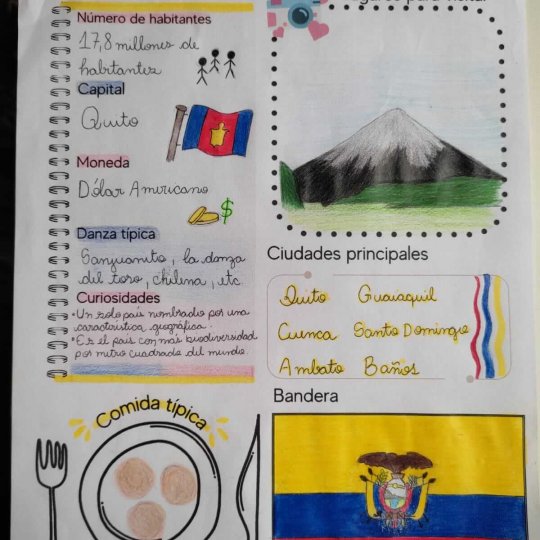 Número de habitantes
17,8 millones de
habitantes
Capital
Quito
Moneda
Dólar Americano
$
Danza típica
Sanjuanito, la danza
del toro, chilena, etc.
Curiosidades
• Un solo país nombrado por una
caracteristica geográfica.
• Es el país con más biodiversidad
por metro cuadrado del mundo.
Comida típica
para visitar
Ciudades principales
Quito Guaiaquil
Cuenca Santo Domingo
Ambato Baños
Bandera